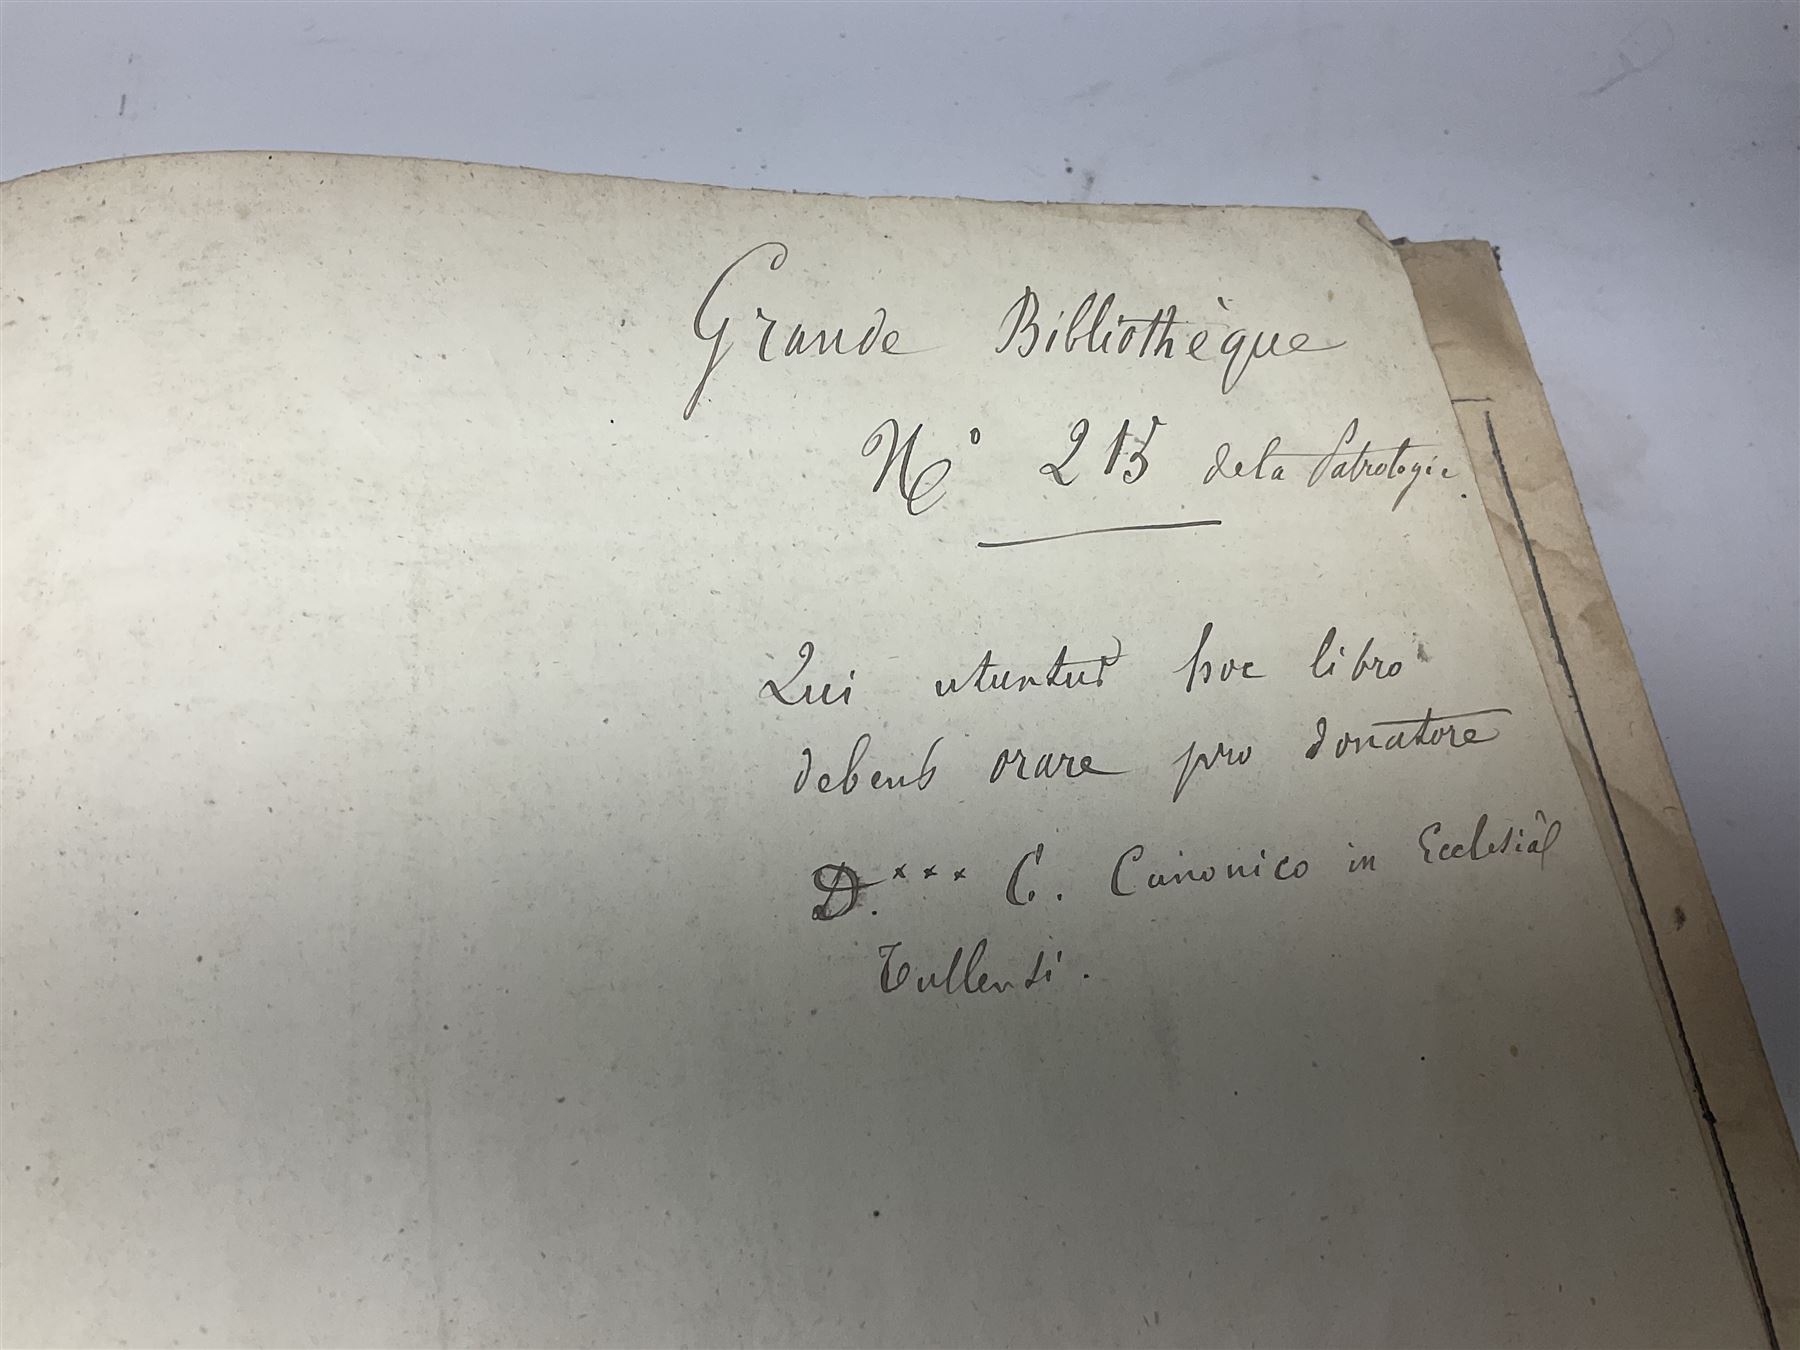 Grande Bibliothèque
No 215 de la Patrologie.
Qui utuntur hoc libro
debent orare pro donatore
D.*** C. Canonico in Ecclesiâ
Tullensi.